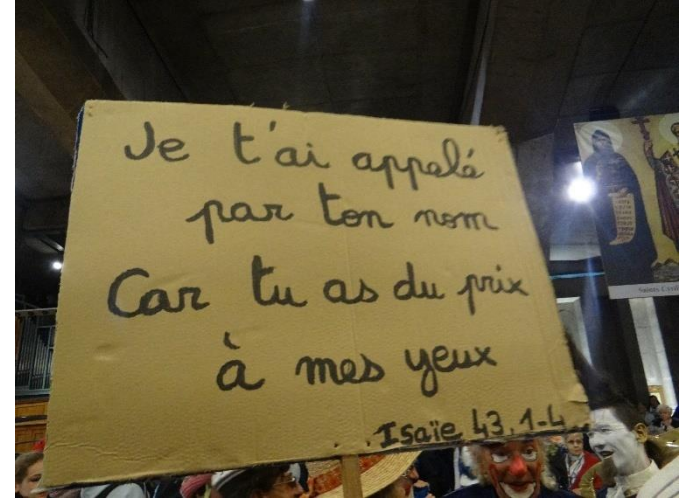 Je t'ai appelé
par ton nom
Car tu as du prix
à mes yeux
Isaïe 43, 1-4